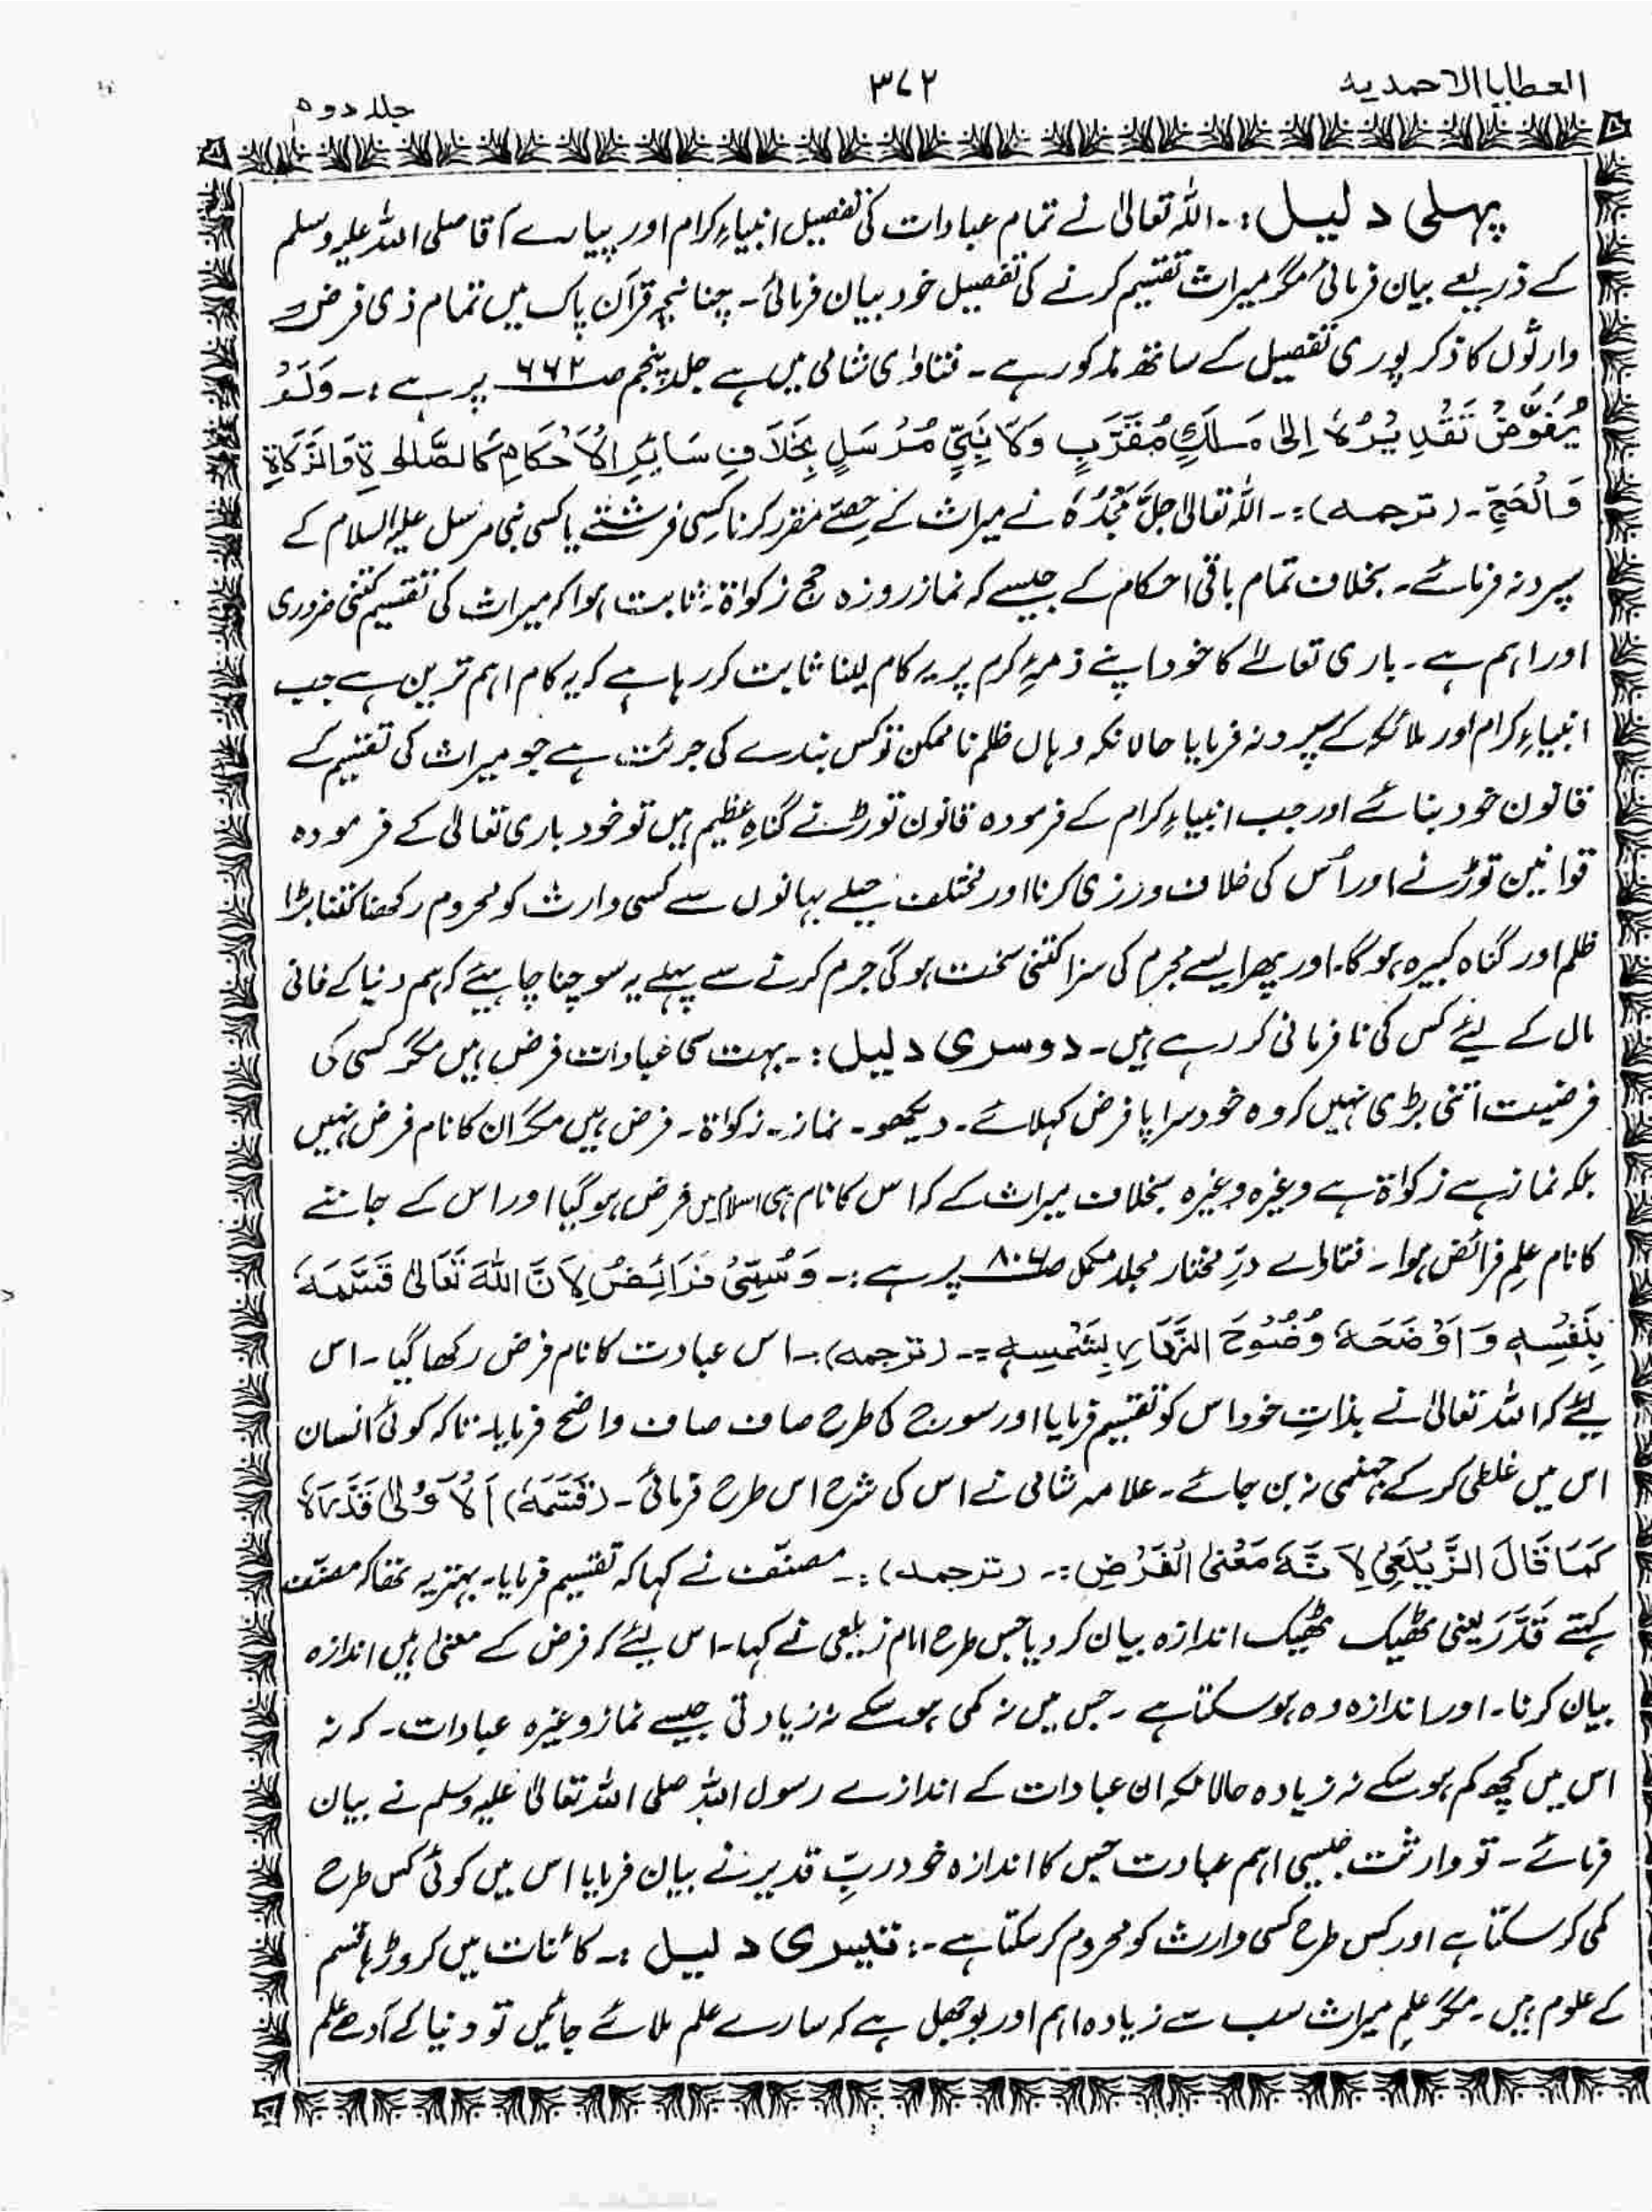 العطایا الاحمدیہ
۳۷۲
جلد دوم
پہلی دلیل:۔ اللہ تعالیٰ نے تمام عبادات کی تفصیل انبیاءِ کرام اور پیارے آقا صلی اللہ علیہ وسلم
کے ذریعے بیان فرمائی مگر میراث تقسیم کرنے کی تفصیل خود بیان فرمائی۔ چنانچہ قرآن پاک میں تمام ذی فرض
وارثوں کا ذکر پوری تفصیل کے ساتھ مذکور ہے۔ فتاوٰی شامی میں ہے جلد پنجم صـ ۶۶۲ پر ہے :۔ وَلَمْ
يُفَوِّضْ تَقْدِيْرَهُ اِلٰى مَلَكٍ مُقَرَّبٍ وَلَا نَبِيٍّ مُرْسَلٍ بِخَلَافِ سَائِرِ الْاَحْكَامِ كَالصَّلٰوةِ وَالزَّكَاةِ
وَالْحَجِّ۔ (ترجمہ):۔ اللہ تعالیٰ جلَّ مَجْدُہٗ نے میراث کے حِصّے مقرر کرنا کسی فرشتے یا کسی نبی مرسل علیہ السلام کے
سپرد نہ فرمائے۔ بخلاف تمام باقی احکام کے جیسے کہ نماز روزہ حج زکواۃ۔ ثابت ہوا کہ میراث کی تقسیم کتنی ضروری
اور اہم ہے۔ باری تعالےٰ کا خود اپنے ذمہِ کرم پر یہ کام لینا ثابت کر رہا ہے کہ یہ کام اہم ترین ہے جب
انبیاءِ کرام اور ملائکہ کے سپرد نہ فرمایا حالانکہ وہاں ظلم ناممکن تو کس بندے کی جرئت ہے جو میراث کی تقسیم کے
قانون خود بنائے اور جب انبیاءِ کرام کے فرمودہ قانون توڑنے گناہِ عظیم ہیں تو خود باری تعالیٰ کے فرمودہ
قوانین توڑنے اور اُس کی خلاف ورزی کرنا اور مختلف حیلے بہانوں سے کسی وارث کو محروم رکھنا کتنا بڑا
ظلم اور گناہ کبیرہ ہو گا۔ اور پھر ایسے مجرم کی سزا کتنی سخت ہو گی جرم کرنے سے پہلے یہ سوچنا چاہیئے کہ ہم دنیا کے فانی
مال کے لیئے کس کی نافرمانی کر رہے ہیں۔ دوسری دلیل:۔ بہت سی عبادات فرض ہیں مگر کسی کی
فرضیت اتنی بڑی نہیں کہ وہ خود سراپا فرض کہلائے۔ دیکھو۔ نماز۔ زکواۃ۔ فرض ہیں مگر ان کا نام فرض نہیں
بلکہ نماز ہے زکواۃ ہے وغیرہ وغیرہ بخلاف میراث کے کہ اس کا نام ہی اسلام میں فرض ہو گیا اور اس کے جاننے
کا نام علمِ فرائض ہوا۔ فتاوٰے درّ مختار مجلد مکمل صـ ۸۰۶ پر ہے :۔ وَسُمِّیَ فَرَائِضُ لِاَنَّ اللّٰهَ تَعَالٰى قَسَّمَهٗ
بِنَفْسِهٖ وَاَوْضَحَهٗ وُضُوحَ النَّهَارِ بِشَمْسِهٖ :۔ (ترجمہ):۔ اس عبادت کا نام فرض رکھا گیا۔ اس
لیئے کہ اللہ تعالیٰ نے بذاتِ خود اس کو تقسیم فرمایا اور سورج کی طرح صاف صاف واضح فرمایا۔ تاکہ کوئی انسان
اس میں غلطی کر کے جہنمی نہ بن جائے۔ علامہ شامی نے اس کی شرح اس طرح فرمائی۔ (قَسَّمَهٗ) اَلْاَوْلٰى قَدَّرَهٗ
كَمَا قَالَ الزَّيْلَعِيُّ لِاَنَّهٗ مَعْنَى الْفَرْضِ :۔ (ترجمہ) :۔ مصنّف نے کہا کہ تقسیم فرمایا۔ بہتر یہ تھا کہ مصنّف
کہتے قَدَّرَ یعنی ٹھیک ٹھیک اندازہ بیان کر دیا جس طرح امام زیلعی نے کہا۔ اس لیئے کہ فرض کے معنیٰ ہیں اندازہ
بیان کرنا۔ اور اندازہ وہ ہو سکتا ہے ۔ جس میں نہ کمی ہو سکے نہ زیادتی جیسے نماز وغیرہ عبادات۔ کہ نہ
اس میں کچھ کم ہو سکے نہ زیادہ حالانکہ ان عبادات کے اندازے رسول اللہ صلی اللہ تعالیٰ علیہ وسلم نے بیان
فرمائے۔ تو وارثت جیسی اہم عبادت جس کا اندازہ خود ربِّ قدیر نے بیان فرمایا اس میں کوئی کس طرح
کمی کر سکتا ہے اور کس طرح کسی وارث کو محروم کر سکتا ہے۔: تیسری دلیل :۔ کائنات میں کروڑہا قسم
کے علوم ہیں۔ مگر علمِ میراث سب سے زیادہ اہم اور بوجھل ہے کہ سارے علم ملائے جائیں تو دنیا کے آدھے علم